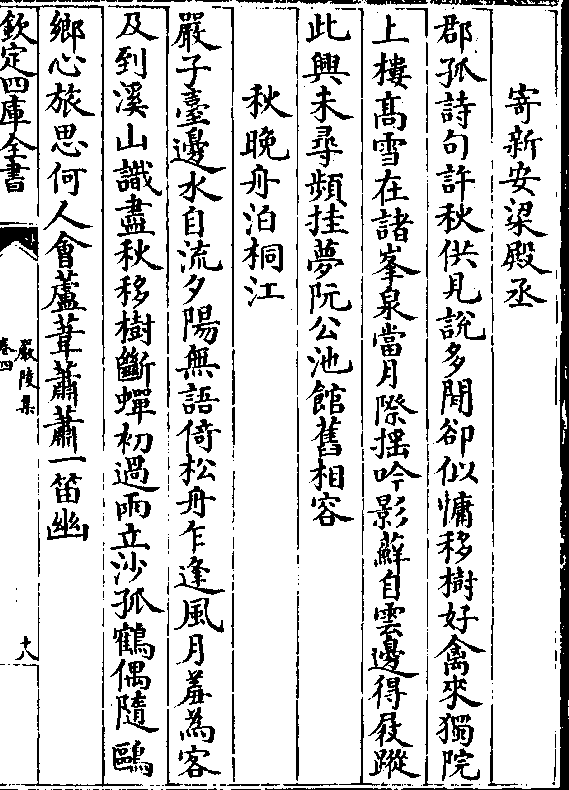 寄新安梁殿丞
郡孤詩句許秋供見說多閒卻似慵移樹好禽來獨院
上樓髙雪在諸峯泉當月際揺吟影蘇自雲邊得屐蹤
此興未尋頻挂夢阮公池館舊相容
秋晚舟泊桐江
嚴子臺邊水自流夕陽無語倚松舟乍逢風月羞為客
及到溪山識盡秋移樹斷蟬初過雨立沙孤鶴偶隨鷗
鄉心旅思何人會蘆葦蕭蕭一笛幽
欽定四庫全書
嚴陵集
卷四
十八